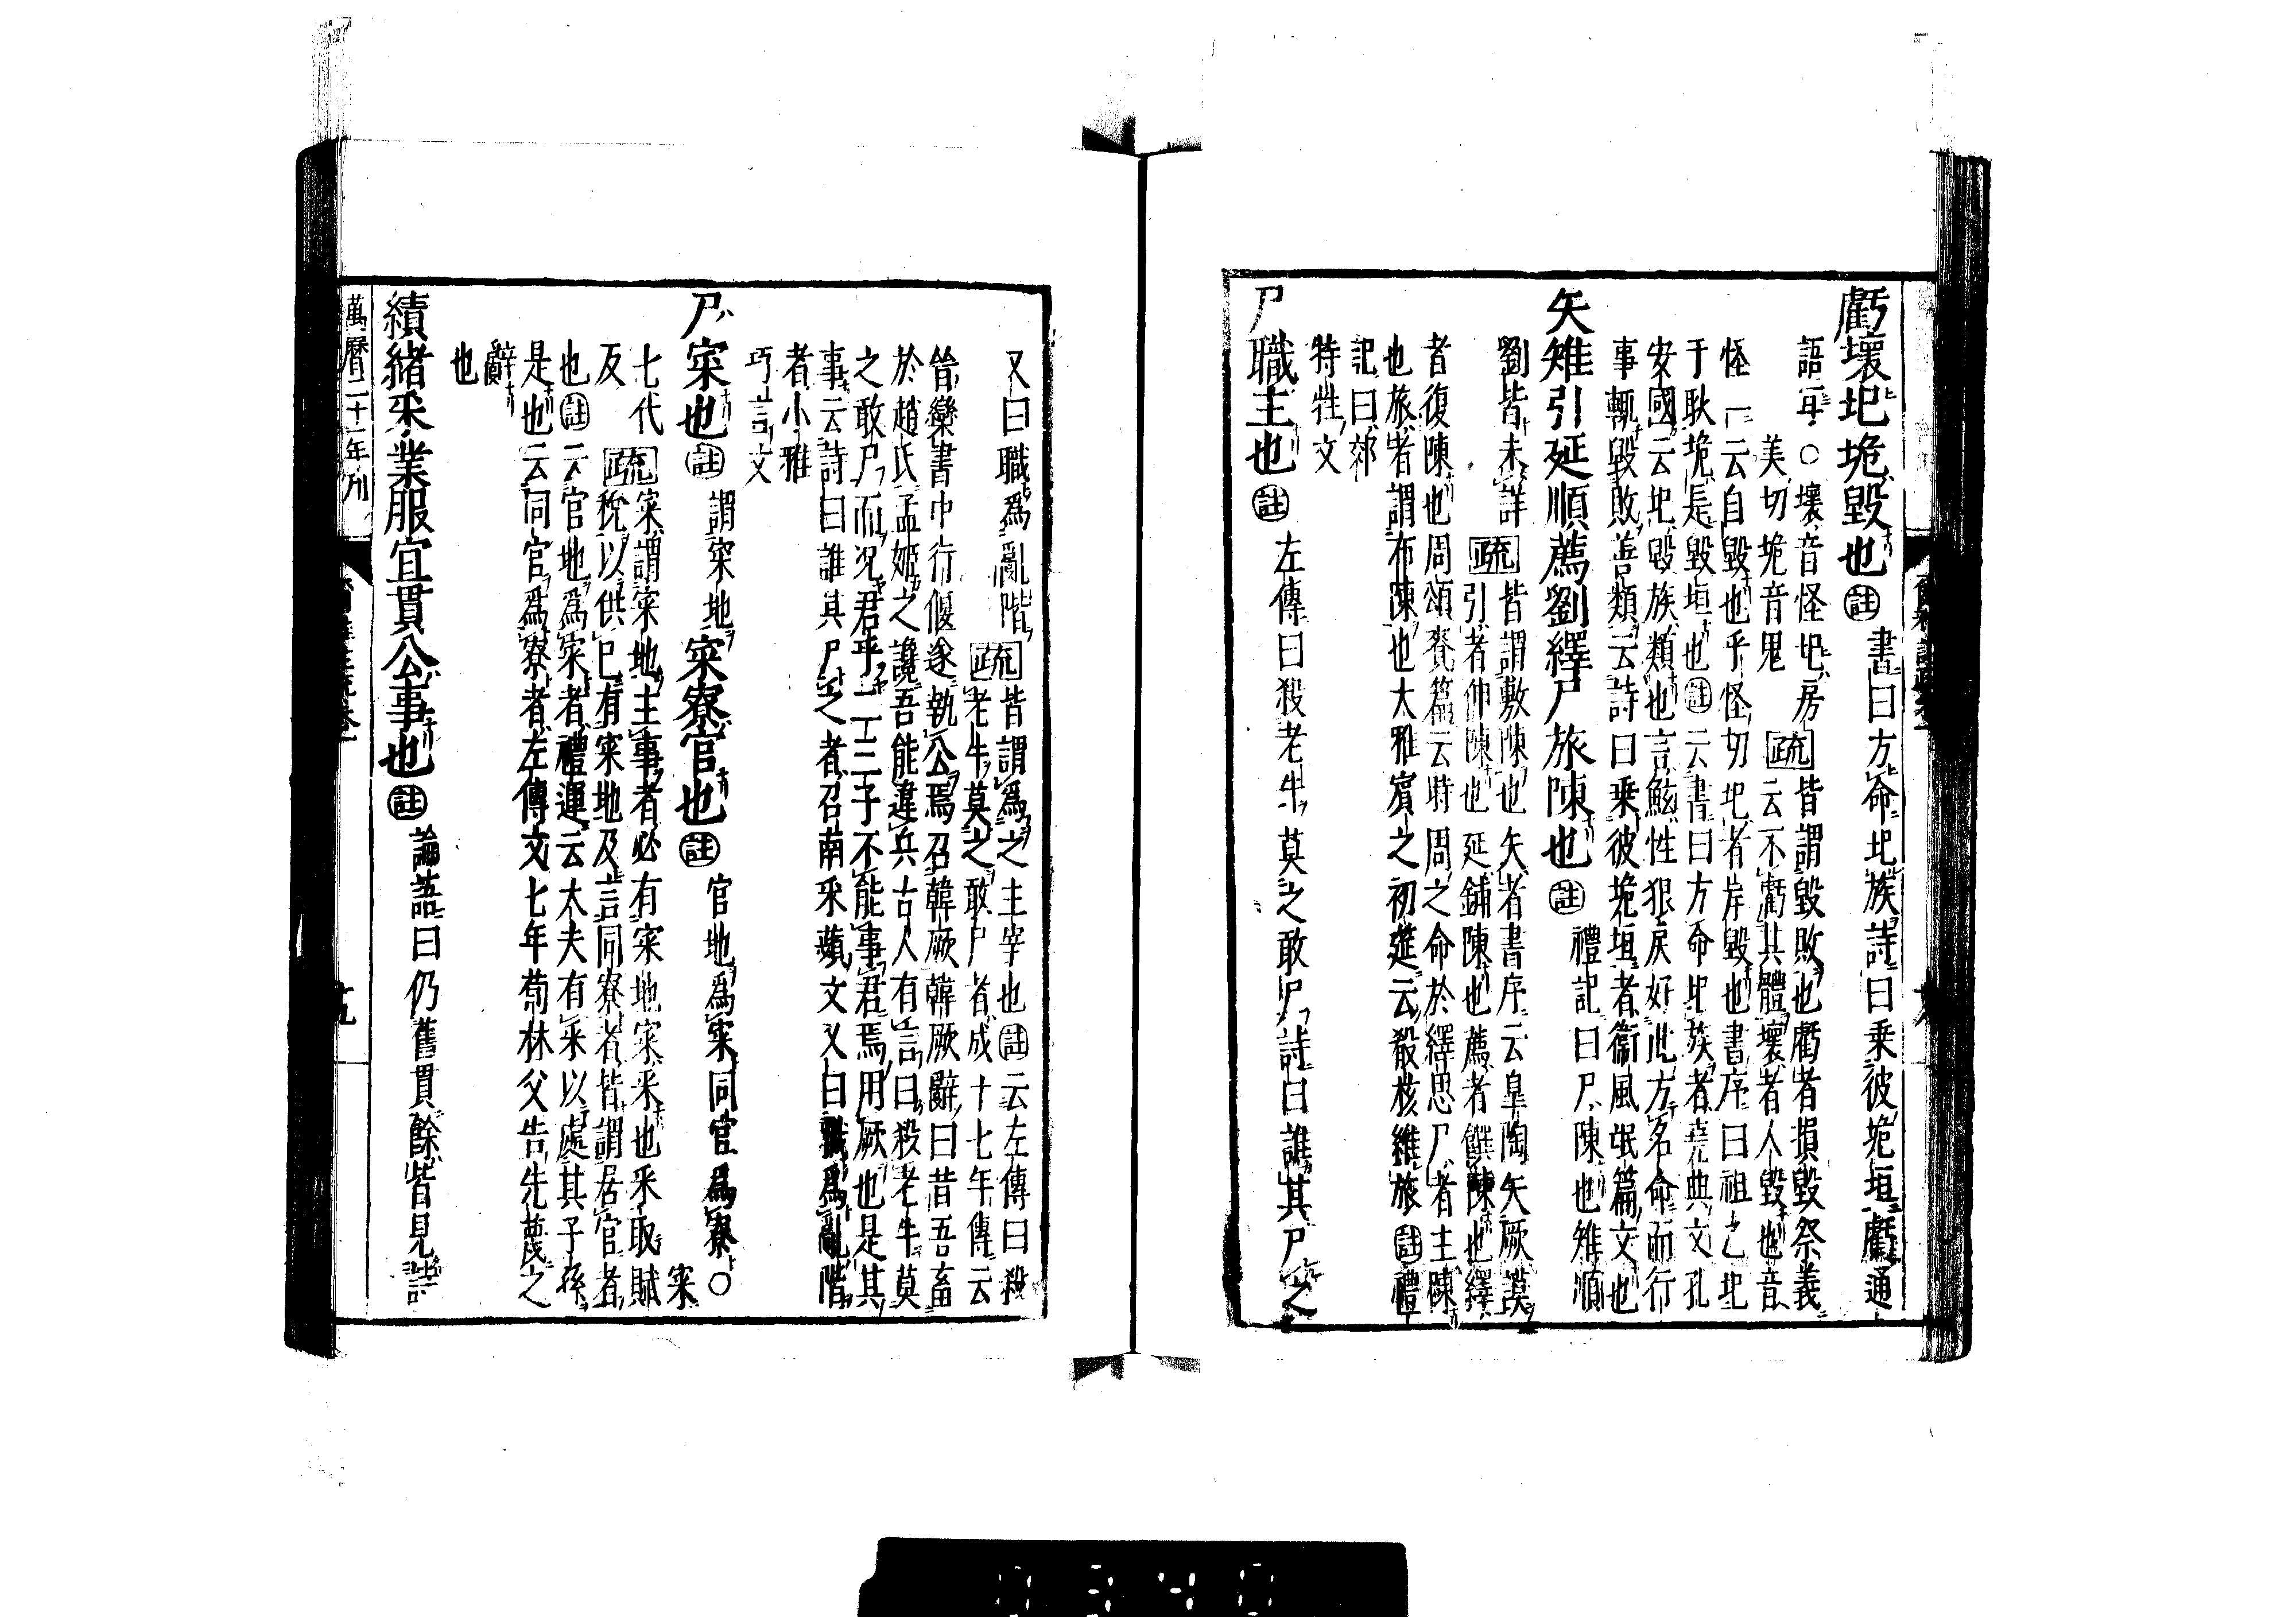 虧壞圯垝毀也註書曰方命圯族詩曰乘彼垝垣虧通
語耳○壞音怪圯房美切垝音鬼疏皆謂毀敗也虧者損毀祭義
云不虧其體壞者人毀也音
怪一云自毀也乎怪切圯者岸毀也書序曰祖乙圯
于耿垝是毀垣也註云書曰方命圯族者堯典文孔
安國云圯毀族類也言鯀性狠戾好此方名命而行
事輒毀敗善類云詩曰乘彼垝垣者衞風氓篇文也
矢雉引延順薦劉繹尸旅陳也註禮記曰尸陳也雉順
劉皆未詳疏皆謂敷陳也矢者書序云皋陶矢厥謨
引者伸陳也延鋪陳也薦者饌陳也繹
者復陳也周頌賚篇云時周之命於繹思尸者主陳
也旅者謂布陳也大雅賓之初筵云殽核維旅註禮
記曰郊
特牲文
尸職主也註左傳曰殺老牛莫之敢尸詩曰誰其尸之
又曰職爲亂階疏皆謂爲之主宰也註云左傳曰殺
老牛莫之敢尸者成十七年傳云
晉欒書中行偃遂執公焉召韓厥韓厥辭曰昔吾畜
於趙氏孟姬之讒吾能違兵古人有言曰殺老牛莫
之敢尸而況君乎二三子不能事君焉用厥也是其
事云詩曰誰其尸之者召南采蘋文又曰職爲亂階
者小雅
巧言文
尸寀也註謂寀地寀寮官也註官地爲寀同官爲寮○
寀
七代
反疏寀謂寀地主事者必有寀地寀采也采取賦
稅以供己有寀地及言同寮者皆謂居官者
也註云官地爲寀者禮運云大夫有采以處其子孫
是也云同官爲寮者左傳文七年荀林父告先蔑之
辭
也
績緒采業服宜貫公事也註論語曰仍舊貫餘皆見詩
萬曆二十一年刊